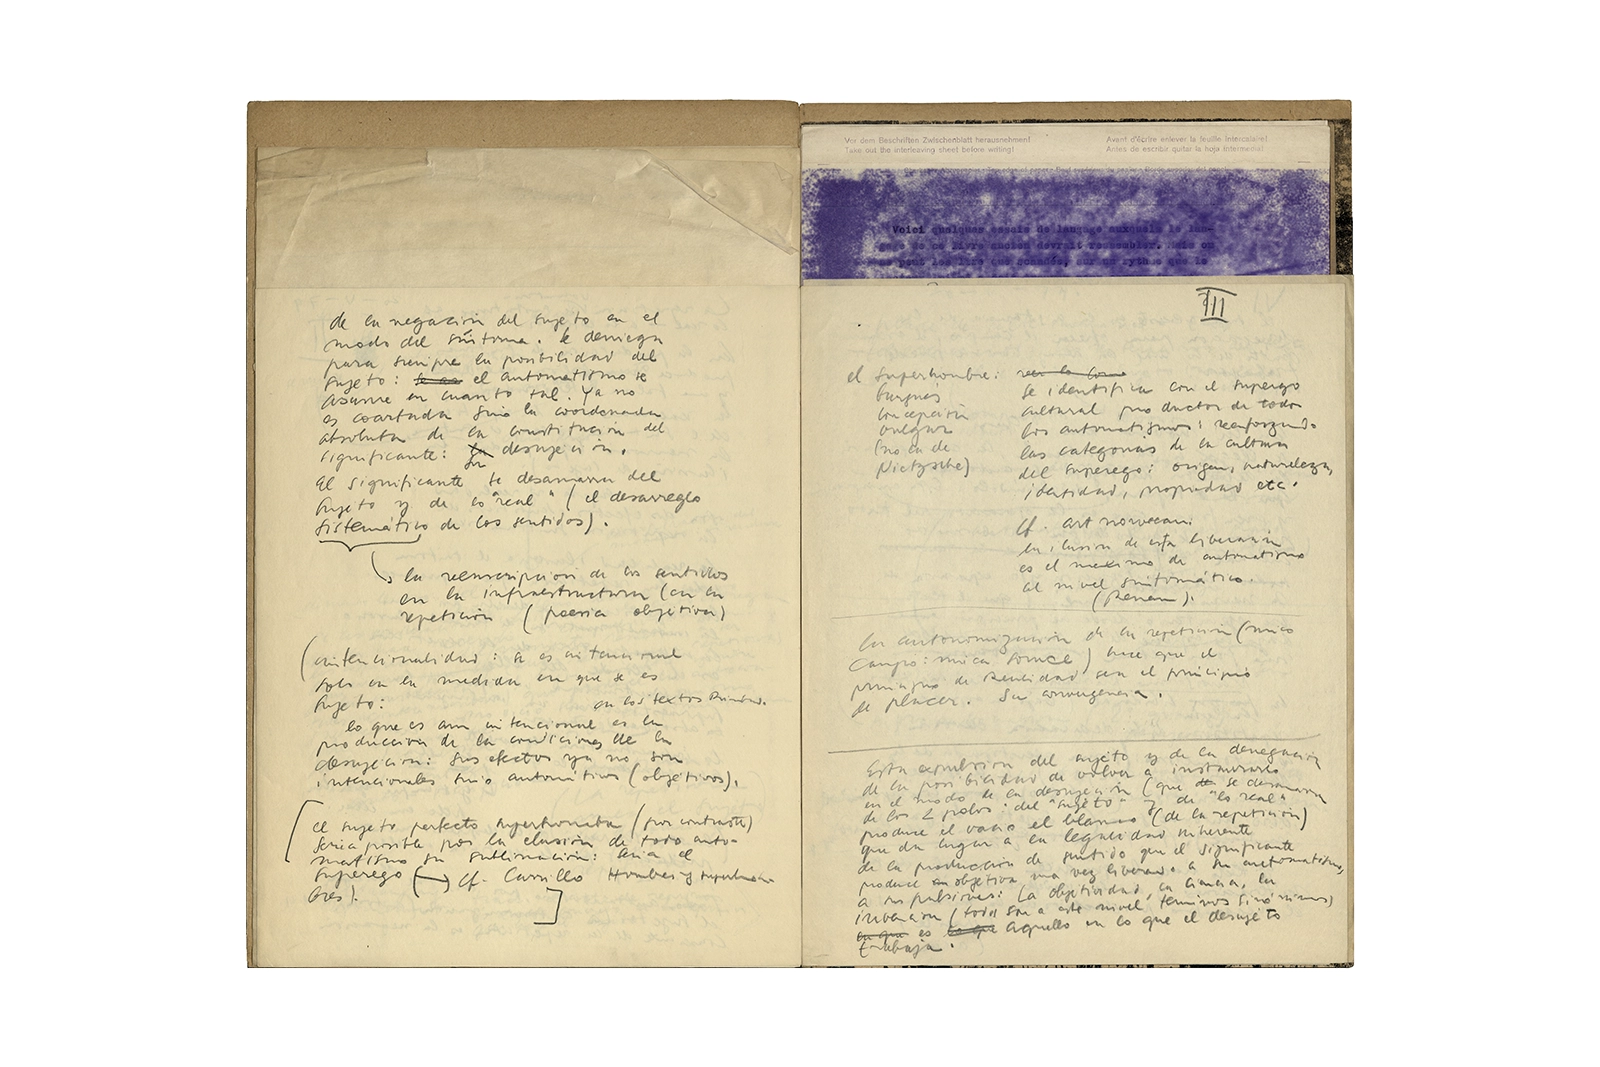 de la negación del sujeto en el
modo del síntoma. Se deniega
para siempre la posibilidad del
sujeto: el automatismo se
asume en cuanto tal. Ya no
es coartada sino la coordenada
absoluta de la constitución del
significante: su desujeción.
El significante se desamarra del
sujeto y de lo "real" (el desarreglo
sistemático de los sentidos).
la reinscripción de los sentidos
en la infraestructura (en la
repetición (poesía objetiva)
(intencionalidad: se es intencional
solo en la medida en que se es
sujeto:
en los textos
lo que es aun intencional es la
producción de las condiciones de la
desujeción: sus efectos ya no son
intencionales sino automáticos (objetivos).
[el sujeto perfecto, superhombre (por contraste)
sería posible por la elusión de todo auto-
matismo su sublimación: sería el
superego Cf. Carrillo Hombres y superhom-
bres).]
Vor dem Beschriften Zwischenblatt herausnehmen!
Take out the interleaving sheet before writing!
Avant d'écrire enlever la feuille intercalaire!
Antes de escribir quitar la hoja intermedia!
Voici quelques essais de langage auxquels le lan-
gage de ce livre ancien devrait ressembler. Mais on
ne peut les lire que scandés, sur un rythme que le
III
el superhombre:
burgués
concepción
vulgar
(no la de
Nietzsche)
ver la como
se identifica con el superego
cultural productor de todos
los automatismos: reenforzando
las categorías de la cultura
del superego: origen, naturaleza,
identidad, propiedad etc.
Cf. art nouveau:
la ilusión de esta liberación
es el maximo de automatismo
al nivel sintomático.
(Renan).
La autonomización de la repetición (único
campo: única source) hace que el
principio de Realidad sea el principio
de placer. Su convergencia.
Esta expulsión del sujeto y de la denegación
de la posibilidad de volver a instaurarlo
en el modo de la desujeción (que se desamarra
de los 2 polos: del "sujeto" y de "lo real"
produce el vacio el blanco (de la repetición)
que da lugar a la legalidad inherente
de la producción de sentido que el significante
produce objetiva una vez liberado a su automatismo,
a sus pulsiones: La objetividad, la ciencia, la
invención (todos son a este nivel, términos sinónimos)
en que es lo que aquello en lo que el desujeto
trabaja.